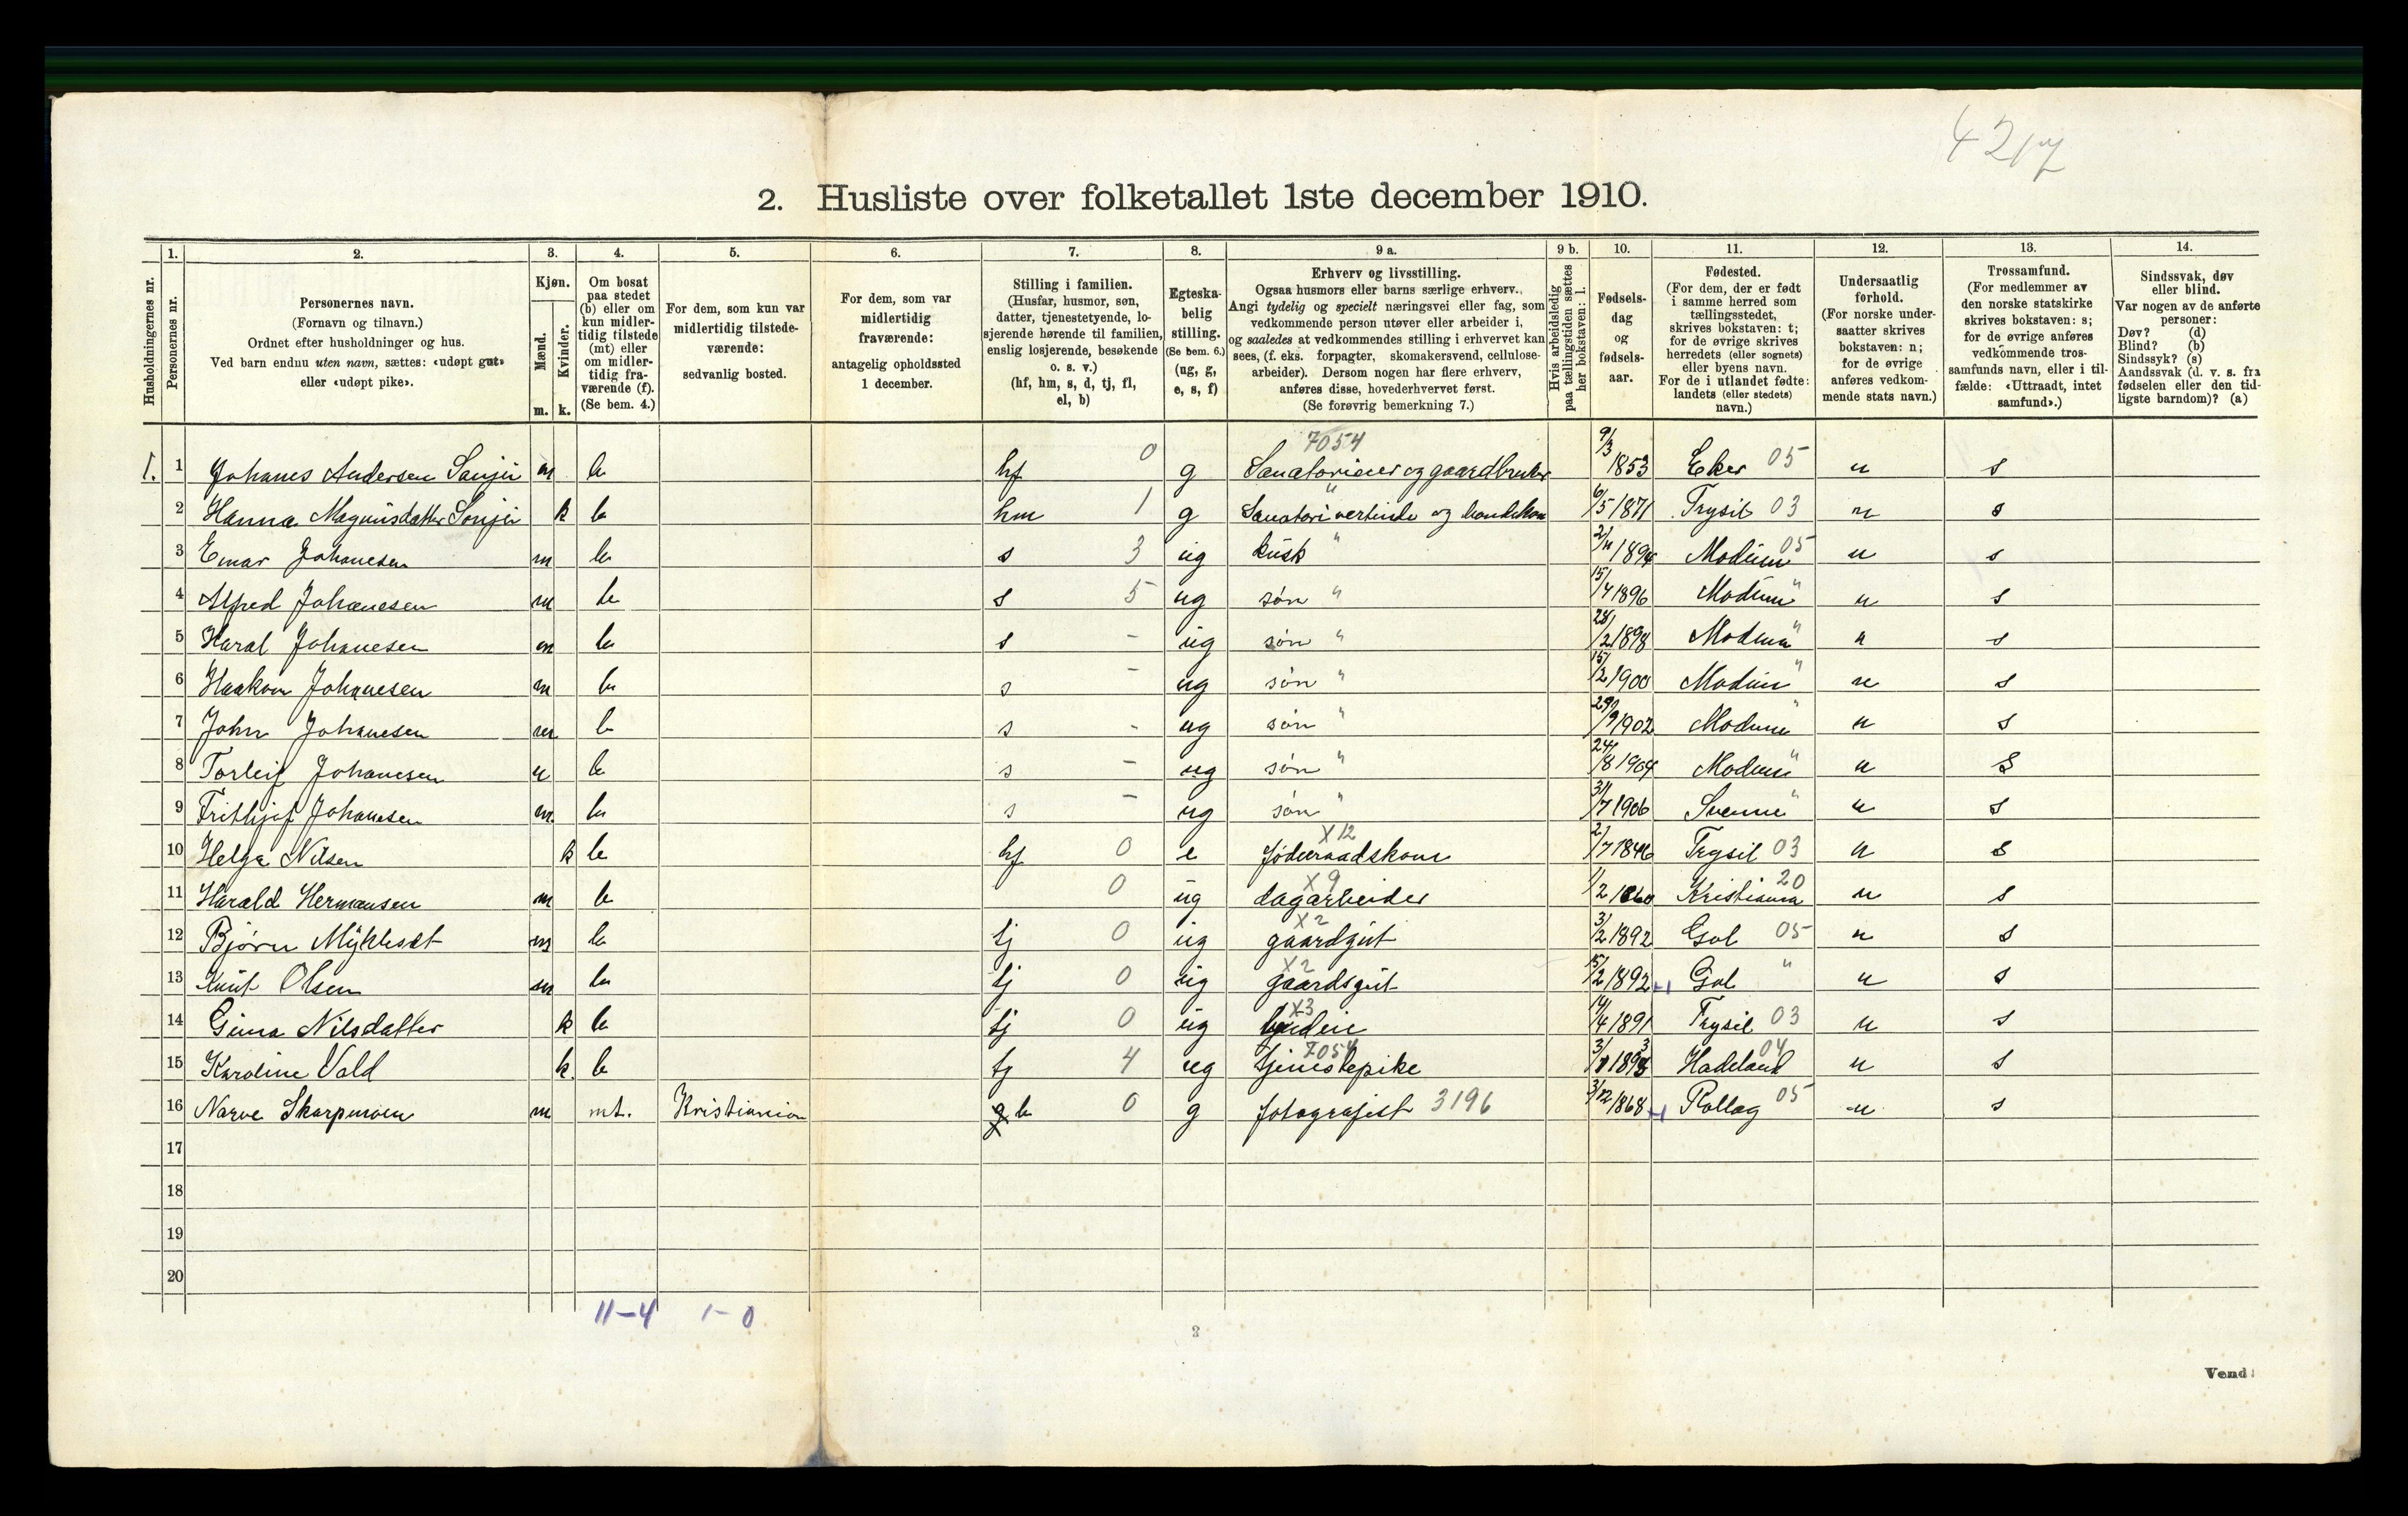 42
2. Husliste over folketallet 1ste december 1910.
Husholdningernes nr.
1. Personernes nr.
2. Personernes navn.
(Fornavn og tilnavn.)
Ordnet efter husholdninger og hus.
Ved barn endnu uten navn, sættes: «udøpt gut»
eller «udøpt pike».
3. Kjøn.
Mænd. m.
Kvinder. k.
4. Om bosat
paa stedet
(b) eller om
kun midler-
tidig tilstede
(mt) eller
om midler-
tidig fra-
værende (f).
(Se bem. 4.)
5. For dem, som kun var
midlertidig tilstede-
værende:
sedvanlig bosted.
6. For dem, som var
midlertidig
fraværende:
antagelig opholdssted
1 december.
7. Stilling i familien.
(Husfar, husmor, søn,
datter, tjenestetyende, lo-
sjerende hørende til familien,
enslig losjerende, besøkende
o. s. v.)
(hf, hm, s, d, tj, fl,
el, b)
8. Egteska-
belig
stilling.
(Se bem. 6.)
(ug, g,
e, s, f)
9 a. Erhverv og livsstilling.
Ogsaa husmors eller barns særlige erhverv.
Angi tydelig og specielt næringsvei eller fag, som
vedkommende person utøver eller arbeider i,
og saaledes at vedkommendes stilling i erhvervet kan
sees, (f. eks. forpagter, skomakersvend, cellulose-
arbeider). Dersom nogen har flere erhverv,
anføres disse, hovederhvervet først.
(Se forøvrig bemerkning 7.)
9 b. Hvis arbeidsledig
paa tællingstiden sættes
her bokstaven: l.
10. Fødsels-
dag
og
fødsels-
aar.
11. Fødested.
(For dem, der er født
i samme herred som
tællingsstedet,
skrives bokstaven: t;
for de øvrige skrives
herredets (eller sognets)
eller byens navn.
For de i utlandet fødte:
landets (eller stedets)
navn.)
12. Undersaatlig
forhold.
(For norske under-
saatter skrives
bokstaven: n;
for de øvrige
anføres vedkom-
mende stats navn.)
13. Trossamfund.
(For medlemmer av
den norske statskirke
skrives bokstaven: s;
for de øvrige anføres
vedkommende tros-
samfunds navn, eller i til-
fælde: «Uttraadt, intet
samfund».)
14. Sindssvak, døv
eller blind.
Var nogen av de anførte
personer:
Døv? (d)
Blind? (b)
Sindssyk? (s)
Aandssvak (d. v. s. fra
fødselen eller den tid-
ligste barndom)? (a)
7054
1. 1 Johanes Andersen m b hf 0 g og gaardbruker 9/3 1853 Eker 05 n s
2 Hanna Magnusdatter k b hm 1 g " og 6/5 1871 Trysil 03 n s
3 Einar Johanesen m b s 3 ug kusk " 1894 Modum 05 n s
4 Alfred Johanesen m b s 5 ug søn " 15/4 1896 Modum " n s
5 Haral Johanesen m b s - ug søn " 28/2 1898 Modum " n s
6 Haakon Johanesen m b s - ug søn " 15/2 1900 Modum " n s
7 John Johanesen m b s - ug søn " 29/9 1902 Modum " n s
8 Torleif Johanesen m b s - ug søn " 24/8 1904 Modum " n s
9 Frithjof Johanesen m b s - ug søn " 31/7 1906 Svenne " n s
10 Helga Nilsen k b hf 0 e føderaadskone X12 2/7 1846 Trysil 03 n s
11 Harald Hermansen m b 0 ug dagarbeider X9 1/2 1860 Kristiania 20 n s
12 Bjørn Mykleset m b tj 0 ug gaardgut X2 3/2 1892 Gol 05 n s
13 Knut Olsen m b tj 0 ug gaardsgut X2 15/2 1892 Gol " n s
14 Gina Nilsdatter k b tj 0 ug X3 14/4 1891 Trysil 03 n s
15 Karoline Vold k b tj 4 ug tjenestepike 7054 Hadeland 04 n s
16 Narve Skarpmoen m mt. Kristiania b 0 g fotografist 3196 3/12 1868 Rollag 05 n s
17
18
19
20
11-4 1-0
2
Vend!